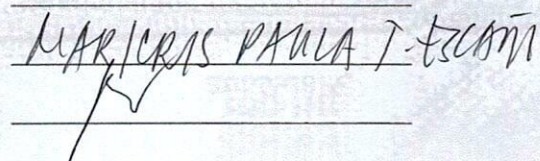 MARICRIS PAULA T. ESCAÑ